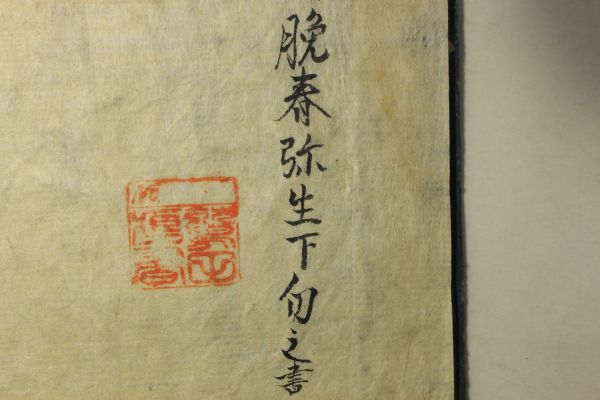 晩春弥生下旬之書